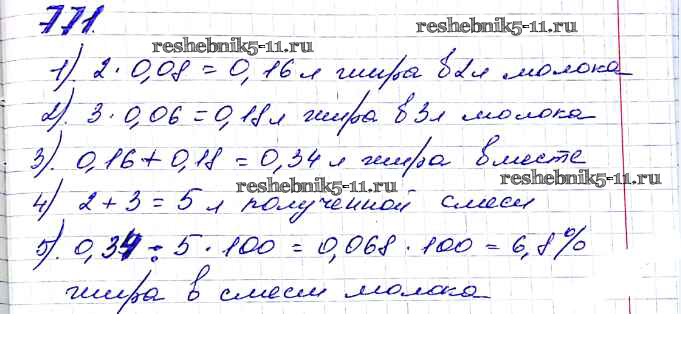 771.
reshebnik5-11.ru
reshebnik5-11.ru
1). 2 · 0,08 = 0,16 л жира в 2л молока
2). 3 · 0,06 = 0,18 л жира в 3л молока
3). 0,16 + 0,18 = 0,34 л жира вместе
reshebnik5-11.ru
reshebnik5-11.ru
4). 2 + 3 = 5 л полученной смеси
5). 0,34 : 5 · 100 = 0,068 · 100 = 6,8%
жира в смеси молока